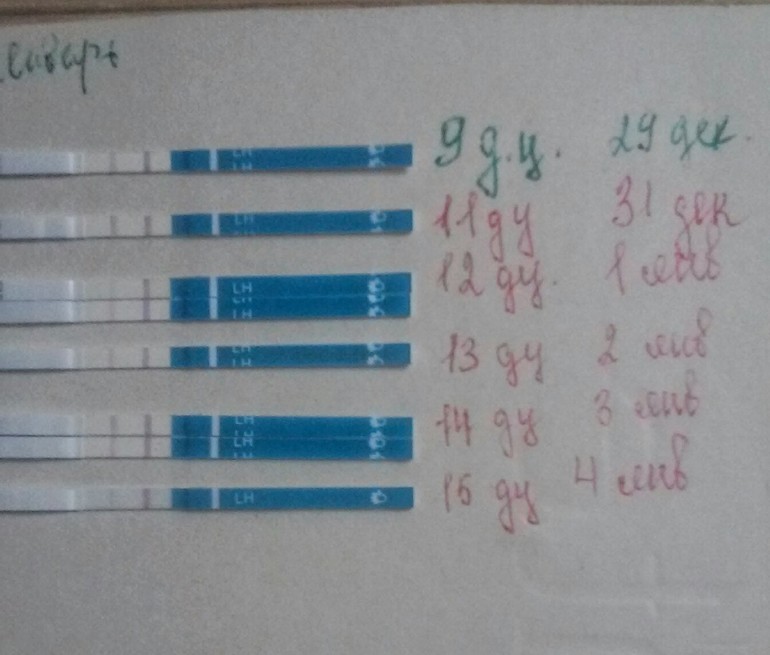 январь
LH
LH
9 д.ц. 29 дек.
LH
11 дц 31 дек
LH
LH
LH
12 дц. 1 янв
LH
LH
13 дц 2 янв
LH
LH
LH
14 дц 3 янв
LH
15 дц 4 янв